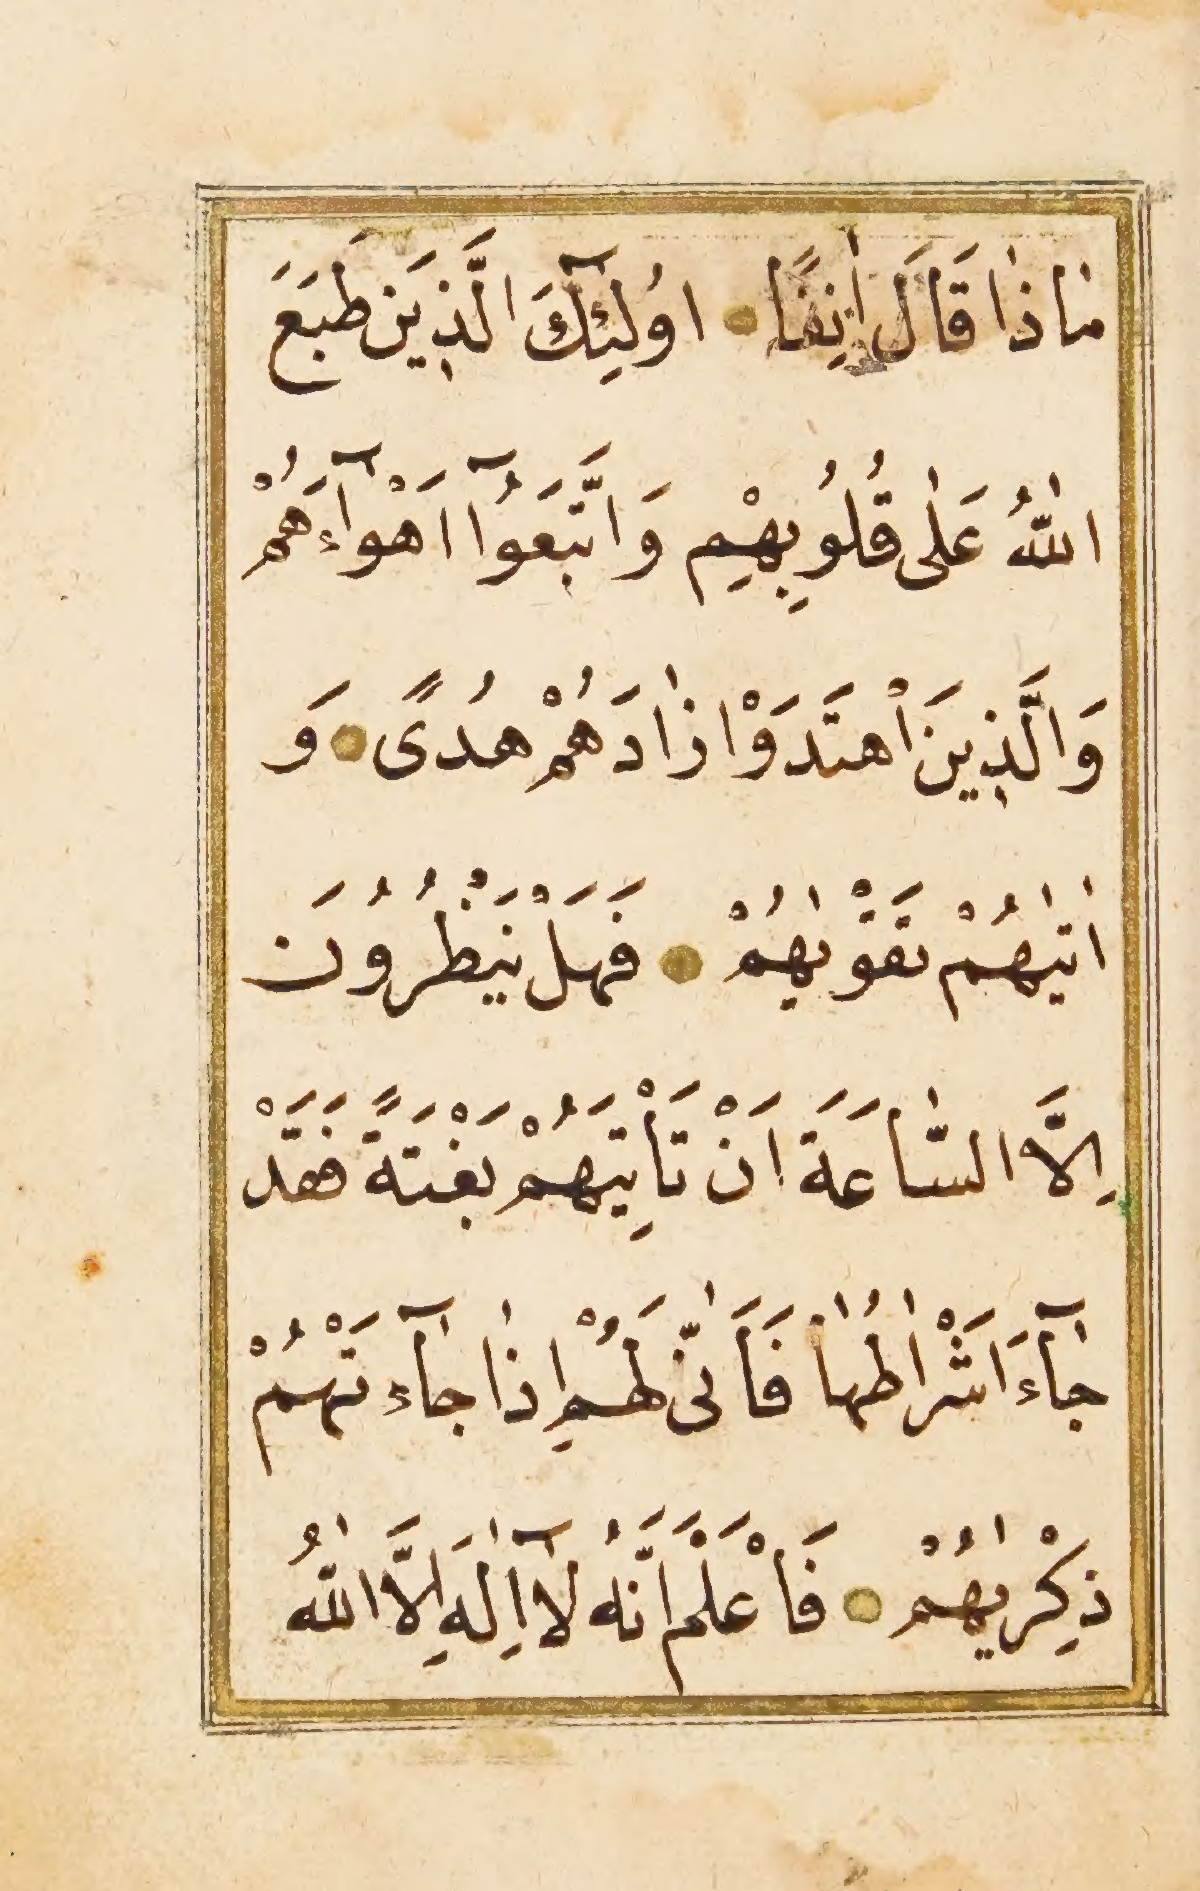 مٰاذٰا قَالَ اٰنِفًا ۝ اُولٰٓئِكَ الَّذِينَ طَبَعَ
اللّٰهُ عَلٰى قُلُوبِهِمْ وَاتَّبَعُوٓا اَهْوٰٓاءَهُمْ
وَالَّذِينَ اهْتَدَوْا زٰادَهُمْ هُدًى ۝ وَ
اٰتٰيهُمْ تَقْوٰيهُمْ ۝ فَهَلْ يَنْظُرُونَ
اِلَّا السّٰاعَةَ اَنْ تَأْتِيَهُمْ بَغْتَةً فَقَدْ
جٰٓاءَ اَشْرٰاطُهٰا فَاَنّٰى لَهُمْ اِذٰا جٰٓاءَتْهُمْ
ذِكْرٰيهُمْ ۝ فَاعْلَمْ اَنَّهُ لٰٓا اِلٰهَ اِلَّا اللّٰهُ